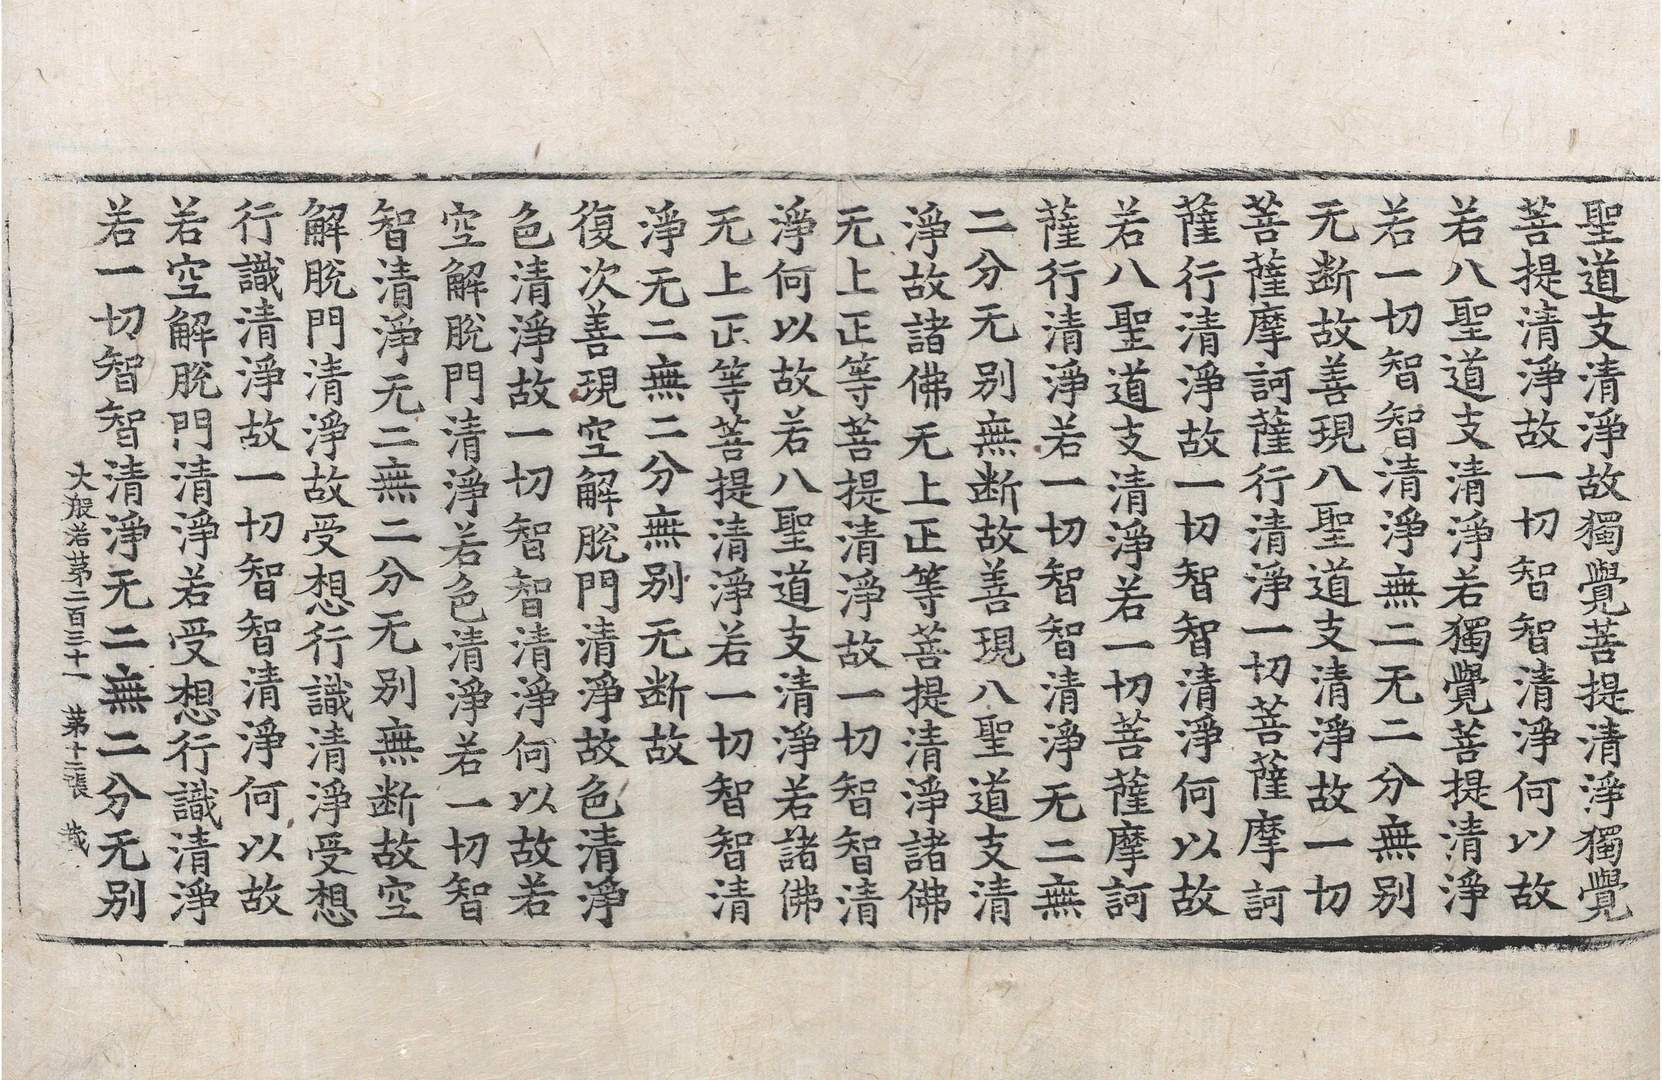 聖道支清淨故獨覺菩提清淨獨覺
菩提清淨故一切智智清淨何以故
若八聖道支清淨若獨覺菩提清淨
若一切智智清淨無二无二分無別
无断故善現八聖道支清淨故一切
菩薩摩訶薩行清淨一切菩薩摩訶
薩行清淨故一切智智清淨何以故
若八聖道支清淨若一切菩薩摩訶
薩行清淨若一切智智清淨无二無
二分无別無断故善現八聖道支清
淨故諸佛无上正等菩提清淨諸佛
无上正等菩提清淨故一切智智清
淨何以故若八聖道支清淨若諸佛
无上正等菩提清淨若一切智智清
淨无二無二分無別无断故
復次善現空解脫門清淨故色清淨
色清淨故一切智智清淨何以故若
空解脫門清淨若色清淨若一切智
智清淨无二無二分无別無断故空
解脫門清淨故受想行識清淨受想
行識清淨故一切智智清淨何以故
若空解脫門清淨若受想行識清淨
若一切智智清淨无二無二分无別
大般若第二百三十一 第十二張 藏